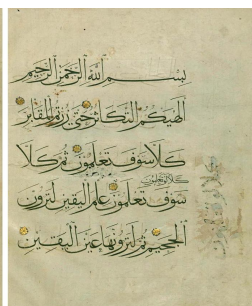 بسم الله الرحمن الرحيم
الهيكم التكاثر حتى زرتم المقابر
كلا سوف تعلمون ثم كلا
كلا لو تعلمون
سوف تعلمون علم اليقين لترون
الجحيم ثم لترونها عين اليقين